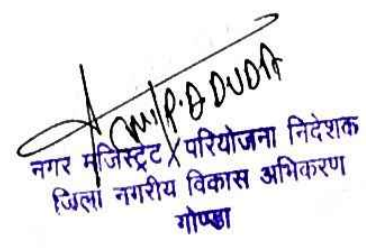 नगर मजिस्ट्रेट / परियोजना निदेशक
जिला नगरीय विकास अभिकरण
गोण्डा